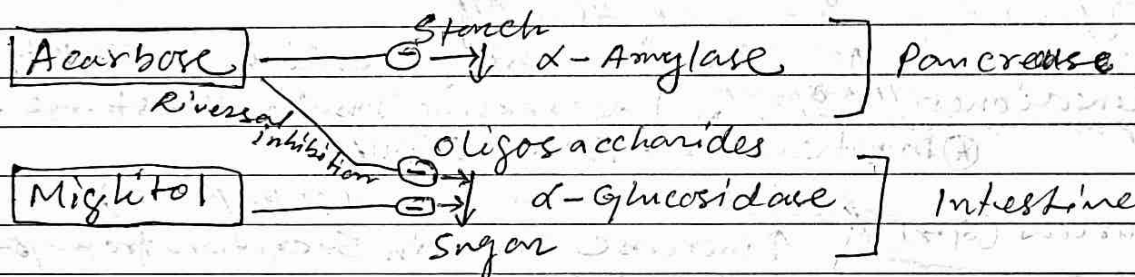 Starch
Acarbose ⊖ → ↓ α-Amylase ] Pancrease
Riversal
inhibition
Oligosaccharides
Miglitol ⊖ → ⊖ → ↓ α-Glucosidase ] Intestine
Sugar